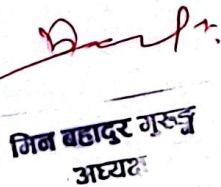 मिन बहादुर गुरुङ्ग
अध्यक्ष